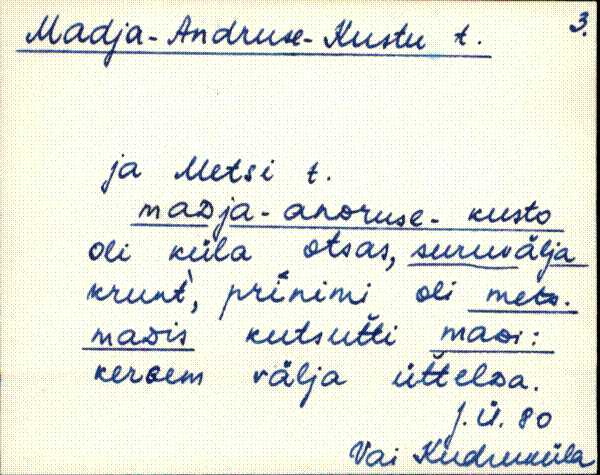 3.
Madja-Andruse-Kustu t.
ja Metsi t.
maDja-anDruse-kusto
oli küla otsas, suruvälja
krunt̀, prinimi oli mets-
maDis kutsutti maDi:
kerGem välja üttelDa.
J.Ü. 80
Vai Kudruküla